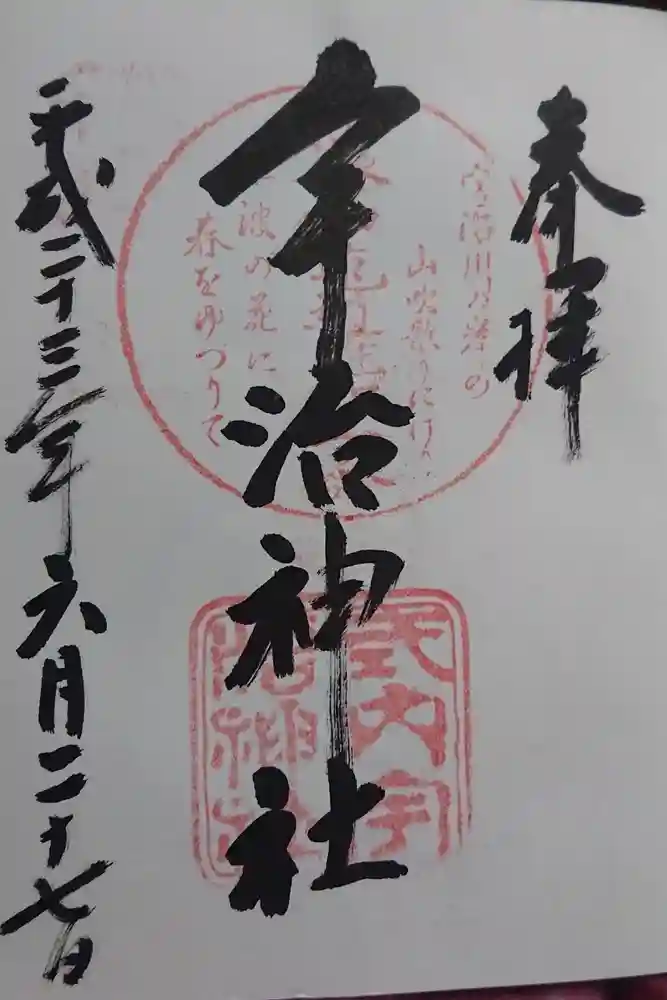 奉拝
宇治神社
平成二十三年六月二十七日
宇治川乃
山吹
波の花に
春をゆづりて
式内宇
治神社